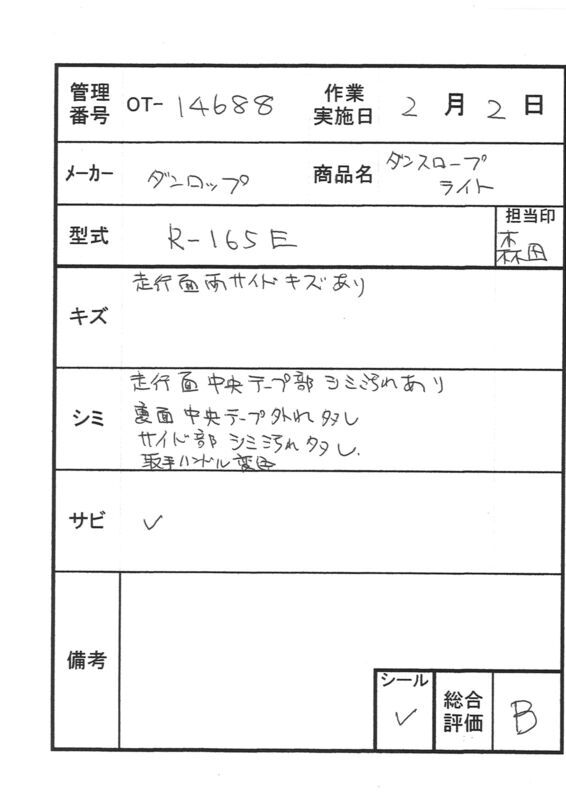 管理番号 OT-14688 作業実施日 2月2日
メーカー ダンロップ 商品名 ダンスロープ
ライト
型式 R-165E 担当印
森田
キズ 走行面両サイドキズあり
シミ 走行面中央テープ部 シミ汚れあり
裏面中央テープ外れ タタレ
サイド部 シミ汚れ タタレ.
取手ハンドル変
サビ ✓
備考
シール ✓ 総合評価 B